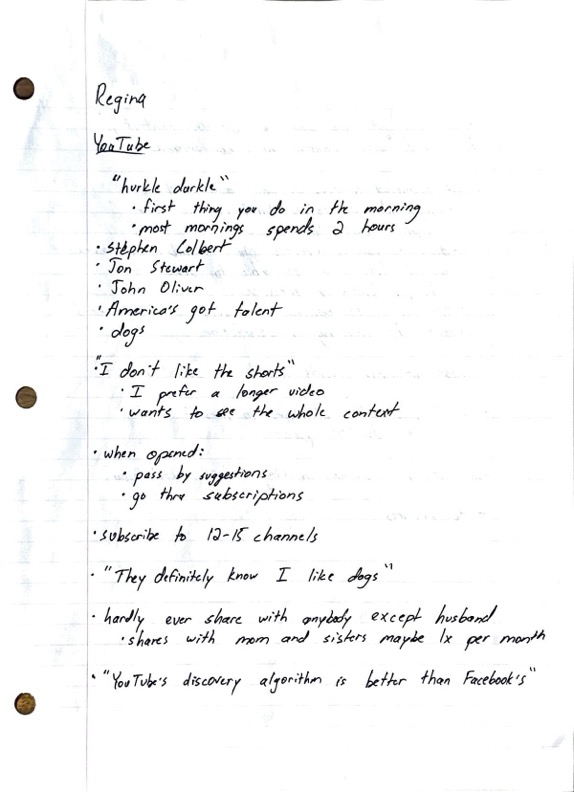 Regina
YouTube
"hurkle durkle"
• first thing you do in the morning
• most mornings spends 2 hours
• Stephen Colbert
• Jon Stewart
• John Oliver
• America's got talent
• dogs
• "I don't like the shorts"
• I prefer a longer video
• wants to see the whole context
• when opened:
• pass by suggestions
• go thru subscriptions
• subscribe to 12-15 channels
• "They definitely know I like dogs"
• hardly ever share with anybody except husband
• shares with mom and sisters maybe 1x per month
• "YouTube's discovery algorithm is better than Facebook's"